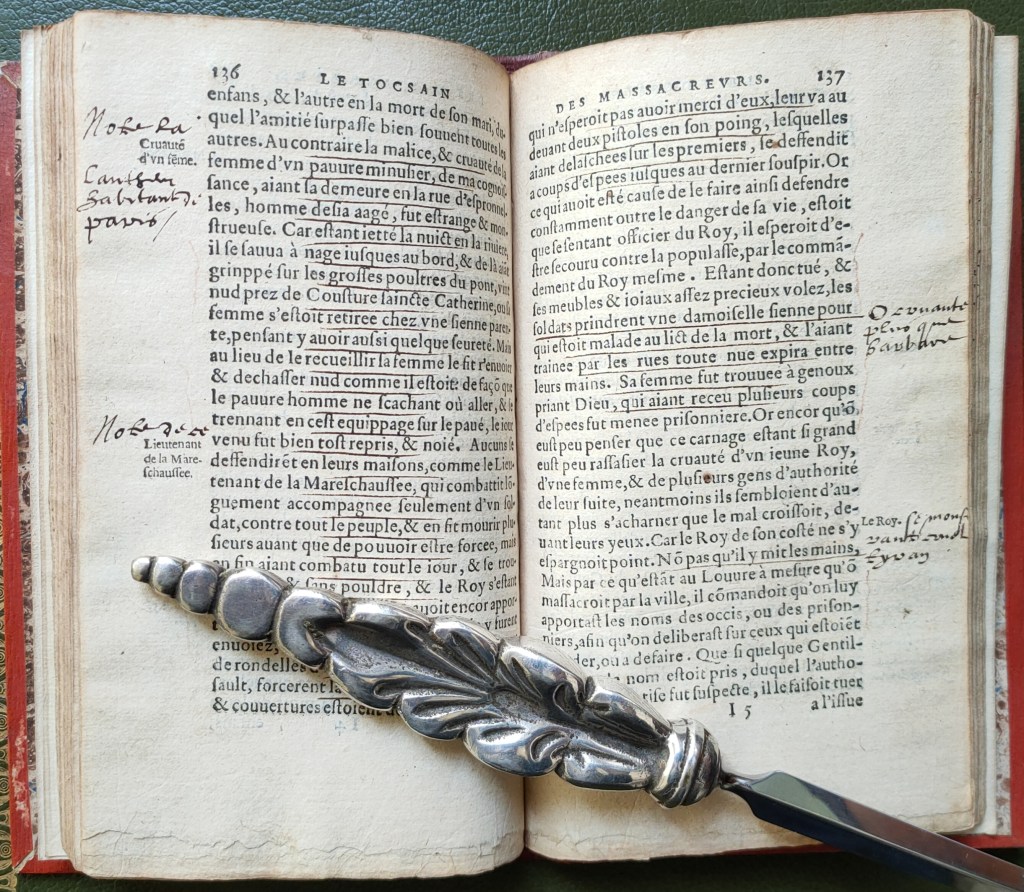 136 LE TOCSAIN
enfans, & l'autre en la mort de son mari, du-
quel l'amitié surpasse bien souuent toutes les
autres. Au contraire la malice, & cruauté de la
femme d'vn pauure minusier, de ma cognois-
sance, aiant sa demeure en la rue d'espronnel-
les, homme desia aagé, fut estrange & mon-
strueuse. Car estant ietté la nuict en la riuiere,
il se sauua à nage iusques au bord, & de là aiāt
grinppé sur les grosses poultres du pont, vint
nud prez de Cousture saincte Catherine, où sa
femme s'estoit retiree chez vne sienne paren-
te, pensant y auoir aussi quelque seureté. Mais
au lieu de le recueillir sa femme le fit r'enuoier
& dechasser nud comme il estoit: de façō que
le pauure homme ne scachant où aller, & se
trennant en cest equippage sur le paué, le iour
venu fut bien tost repris, & noié. Aucuns se
deffendirēt en leurs maisons, comme le Lieu-
tenant de la Mareschaussee, qui combattit lō-
guement accompagnee seulement d'vn sol-
dat, contre tout le peuple, & en fit mourir plu-
sieurs auant que de pouuoir estre forcee, mais
en fin aiant combatu tout le iour, & se trou-
& sans pouldre, & le Roy s'estant
uoit encor appor-
y furent
enuoiez,
de rondelles
sault, forcerent la
& couuertures estoient de
Note la
Cruauté
d'vn fēme.
habitant
paris
Note de ce
Lieutenant
de la Mare-
schaussee.
DES MASSACREVRS. 137
qui n'esperoit pas auoir merci d'eux, leur va au
deuant deux pistoles en son poing, lesquelles
aiant delaschees sur les premiers, se deffendit
a coups d'espees iusques au dernier souspir. Or
ce qui auoit esté cause de le faire ainsi defendre
constamment outre le danger de sa vie, estoit
que se sentant officier du Roy, il esperoit d'e-
stre secouru contre la populasse, par le commā-
dement du Roy mesme. Estant donc tué, &
ses meubles & ioiaux assez precieux volez, les
soldats prindrent vne damoiselle sienne pour
qui estoit malade au lict de la mort, & l'aiant
trainee par les rues toute nue expira entre
leurs mains. Sa femme fut trouuee à genoux
priant Dieu, qui aiant receu plusieurs coups
d'espees fut menee prisonniere. Or encor qu'ō
eust peu penser que ce carnage estant si grand
eust peu rassasier la cruauté d'vn ieune Roy,
d'vne femme, & de plusieurs gens d'authorité
de leur suite, neantmoins ils sembloient d'au-
tant plus s'acharner que le mal croissoit, de-
uant leurs yeux. Car le Roy de son costé ne s'y
espargnoit point. Nō pas qu'il y mit les mains,
Mais par ce qu'estāt au Louure à mesure qu'ō
massacroit par la ville, il cōmandoit qu'on luy
apportast les noms des occis, ou des prison-
niers, afin qu'on deliberast sur ceux qui estoiēt
der, ou a defaire. Que si quelque Gentil-
nom estoit pris, duquel l'autho-
rise fut suspecte, il le faisoit tuer
I 5 a l'issue
O cruauté
plus que
barbare
Le Roy.